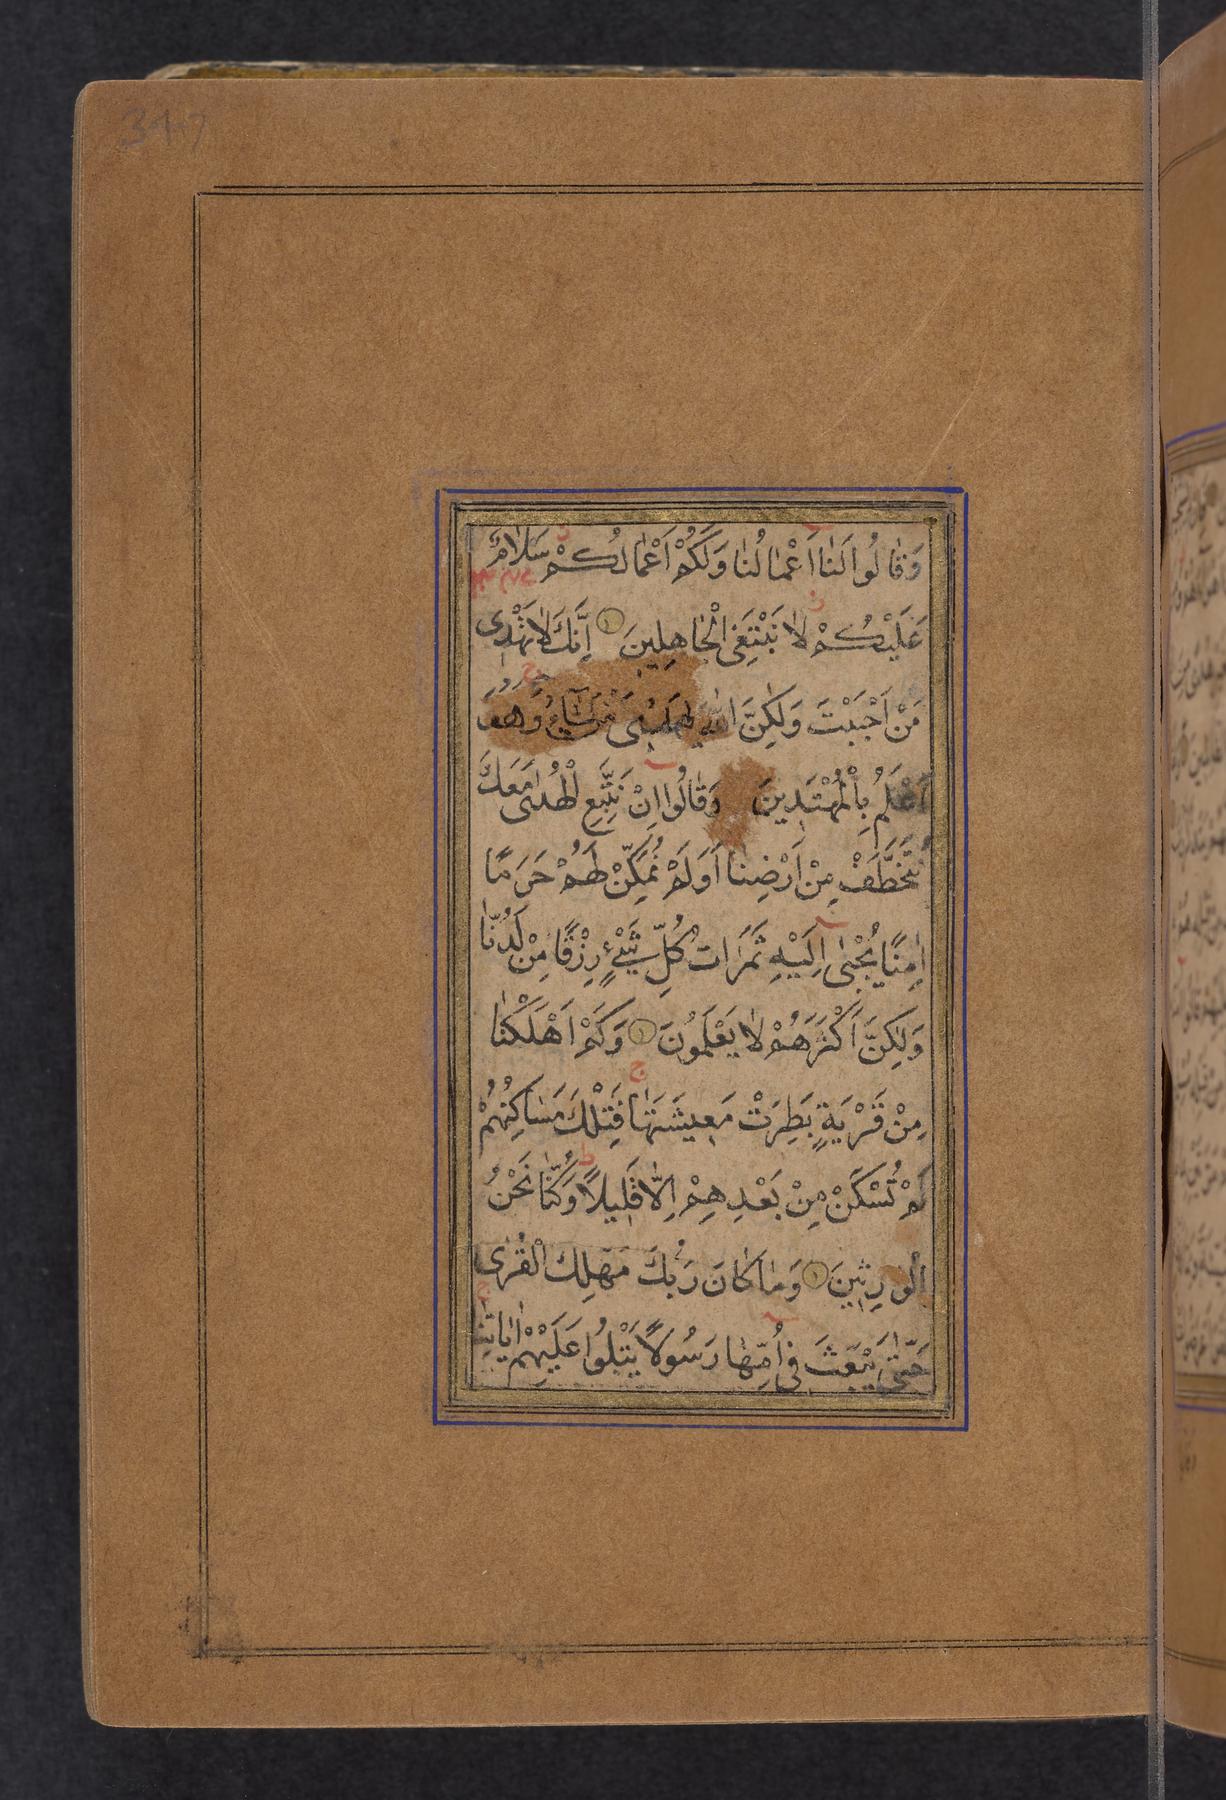 347
وَقَالُوا لَنَا اَعْمَالُنَا وَلَكُمْ اَعْمَالُكُمْ سَلَامٌ
عَلَيْكُمْ لَا نَبْتَغِى الْجَاهِلِينَ اِنَّكَ لَا تَهْدِى
مَنْ اَحْبَبْتَ وَلٰكِنَّ اللّٰهَ يَهْدِى مَنْ يَشَاءُ وَهُوَ
اَعْلَمُ بِالْمُهْتَدِينَ وَقَالُوا اِنْ نَتَّبِعِ الْهُدٰى مَعَكَ
نُتَخَطَّفْ مِنْ اَرْضِنَا اَوَلَمْ نُمَكِّنْ لَهُمْ حَرَمًا
اٰمِنًا يُجْبٰى اِلَيْهِ ثَمَرَاتُ كُلِّ شَيْءٍ رِزْقًا مِنْ لَدُنَّا
وَلٰكِنَّ اَكْثَرَهُمْ لَا يَعْلَمُونَ وَكَمْ اَهْلَكْنَا
مِنْ قَرْيَةٍ بَطِرَتْ مَعِيشَتَهَا فَتِلْكَ مَسَاكِنُهُمْ
لَمْ تُسْكَنْ مِنْ بَعْدِهِمْ اِلَّا قَلِيلًا وَكُنَّا نَحْنُ
الْوَارِثِينَ وَمَا كَانَ رَبُّكَ مُهْلِكَ الْقُرٰى
حَتّٰى يَبْعَثَ فِى اُمِّهَا رَسُولًا يَتْلُوا عَلَيْهِمْ اٰيَاتِنَا